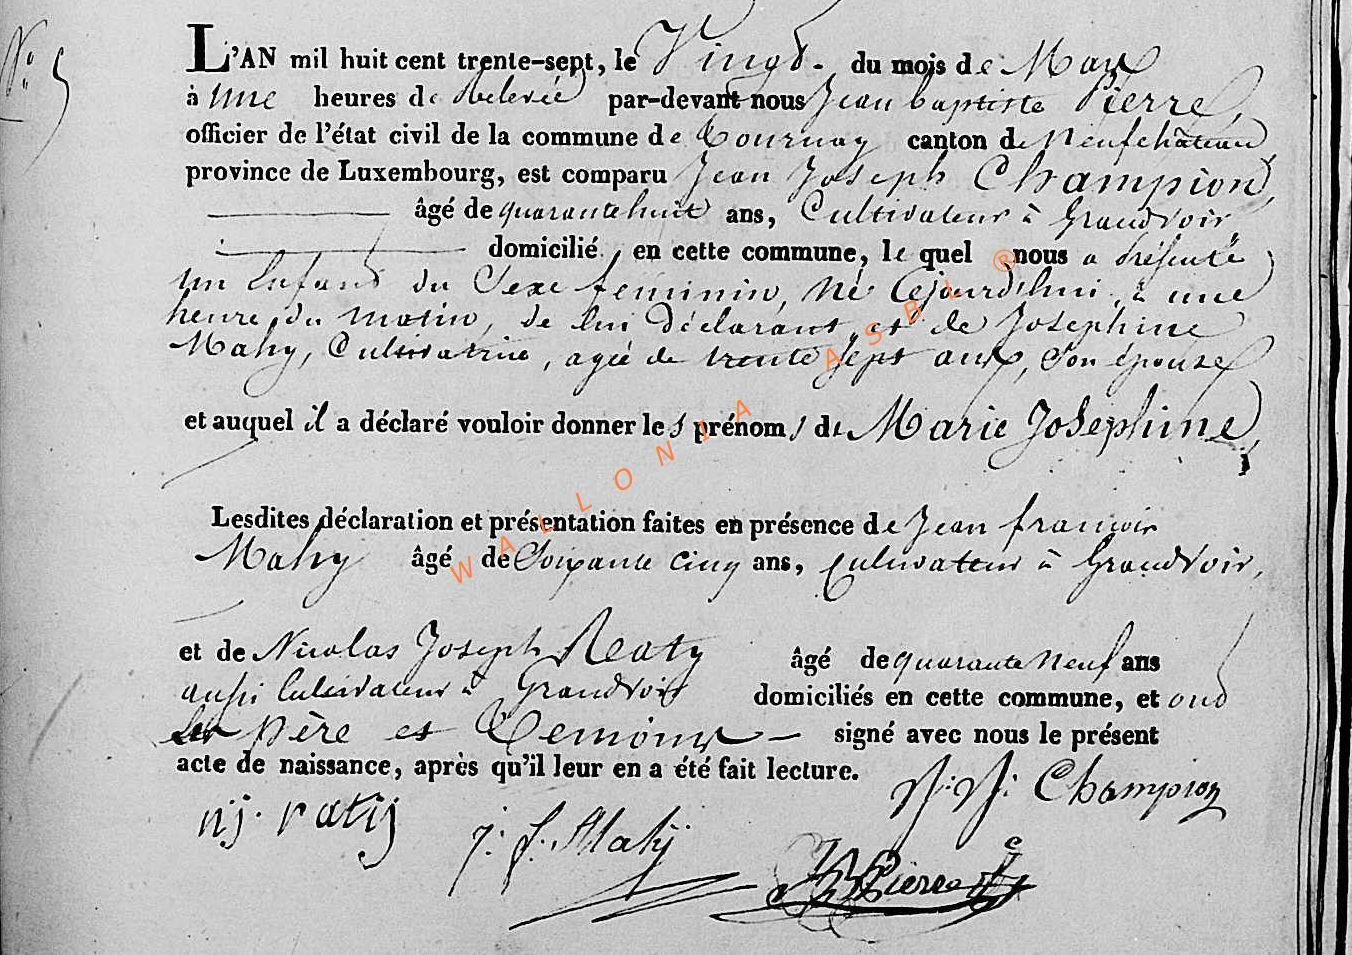 N° 5
L'AN mil huit cent trente-sept, le Vingt du mois de Mars
à une heures de Relevée par-devant nous Jean baptiste Pierre,
officier de l'état civil de la commune de Tournay canton de Neufchâteau
province de Luxembourg, est comparu Jean Joseph Champion,
âgé de quarante huit ans, Cultivateur à Grandvoir,
domicilié en cette commune, le quel nous a présenté
un Enfant du Sexe féminin, né Cejourd'hui, à une
heure du matin, de lui Déclarant et de Josephine
Mahy, Cultivatrice, agée de trente sept ans, Son épouse
et auquel il a déclaré vouloir donner les prénoms de Marie Josephine,
Lesdites déclaration et présentation faites en présence de Jean francois
Mahy âgé de Soixante cinq ans, Cultivateur à Grandvoir,
et de Nicolas Joseph Reaty âgé de quarante neuf ans
aussi Cultivateur à Grandvoir domiciliés en cette commune, et ont
les père et Temoins signé avec nous le présent
acte de naissance, après qu'il leur en a été fait lecture.
J. J. Champion
nj. ratij
j. f. Mahij
JB Pierre
WALLONIA ASBL ®